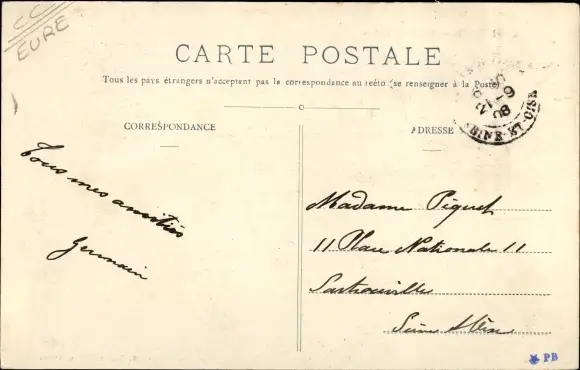 CC
EURE
CARTE POSTALE
Tous les pays étrangers n'acceptent pas la correspondance au recto (se renseigner à la Poste)
CORRESPONDANCE
ADRESSE
SEINE-ET-OISE
Tous mes amitiés
Germain
Madame Piquet
11 Place Nationale 11
Sartrouville
Seine & Oise
PB